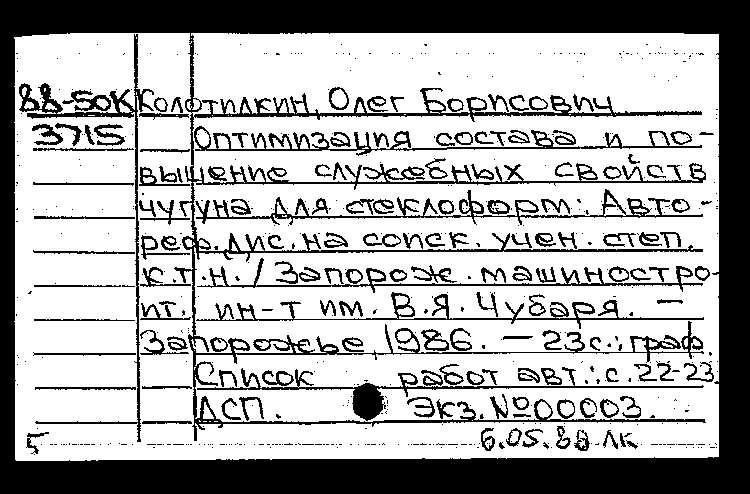 88-50К Колотилкин, Олег Борисович
3715 Оптимизация состава и по-
вышение служебных свойств
чугуна для стеклоформ: Авто-
реф. дис. на соиск. учен. степ.
к.т.н. / Запорож. машиностро-
ит. ин-т им. В.Я. Чубаря. —
Запорожье, 1986. — 23с.: граф.
Список работ авт.: с. 22-23.
ДСП. Экз. №00003.
5 6.05.88 лк